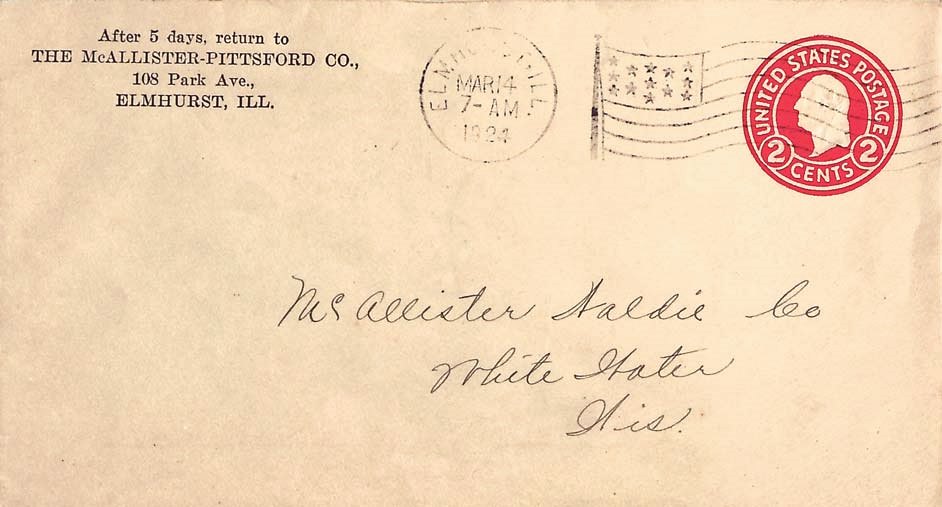 After 5 days, return to
THE McALLISTER-PITTSFORD CO.,
108 Park Ave.,
ELMHURST, ILL.
ELMHURST ILL.
MAR 14
7-AM
1924
UNITED STATES POSTAGE
2 CENTS 2
McAllister Waldie Co
White Water
Wis.